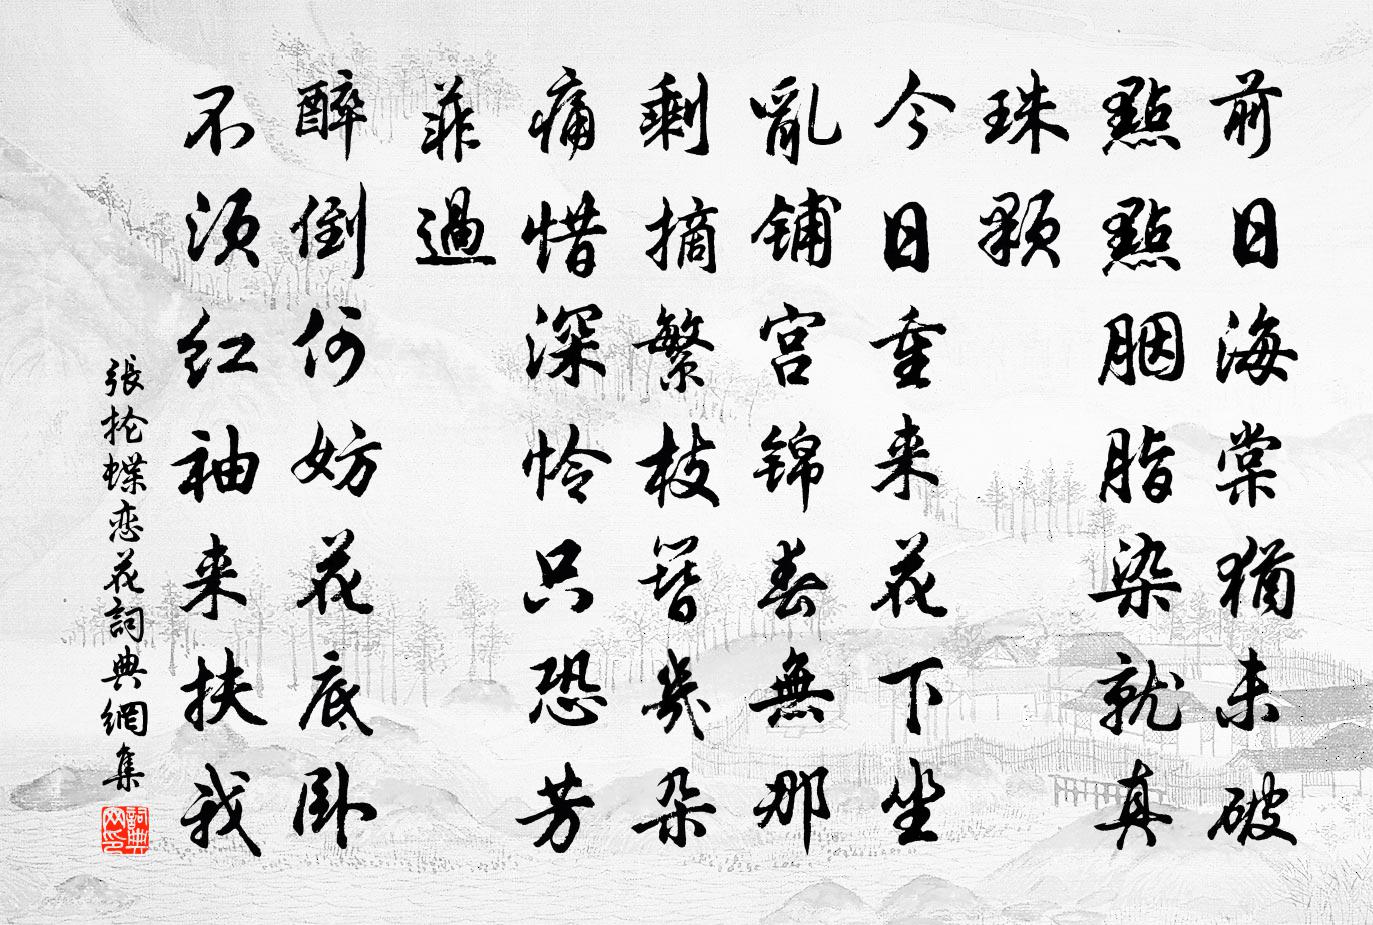 前日海棠猶未破
點點胭脂染就真
珠顆
今日重来花下坐
亂铺宫锦春無那
剩摘繁枝簪幾朵
痛惜深怜只恐芳
菲過
醉倒何妨花底卧
不须红袖来扶我
張抡蝶恋花詞典網集
詞典网印